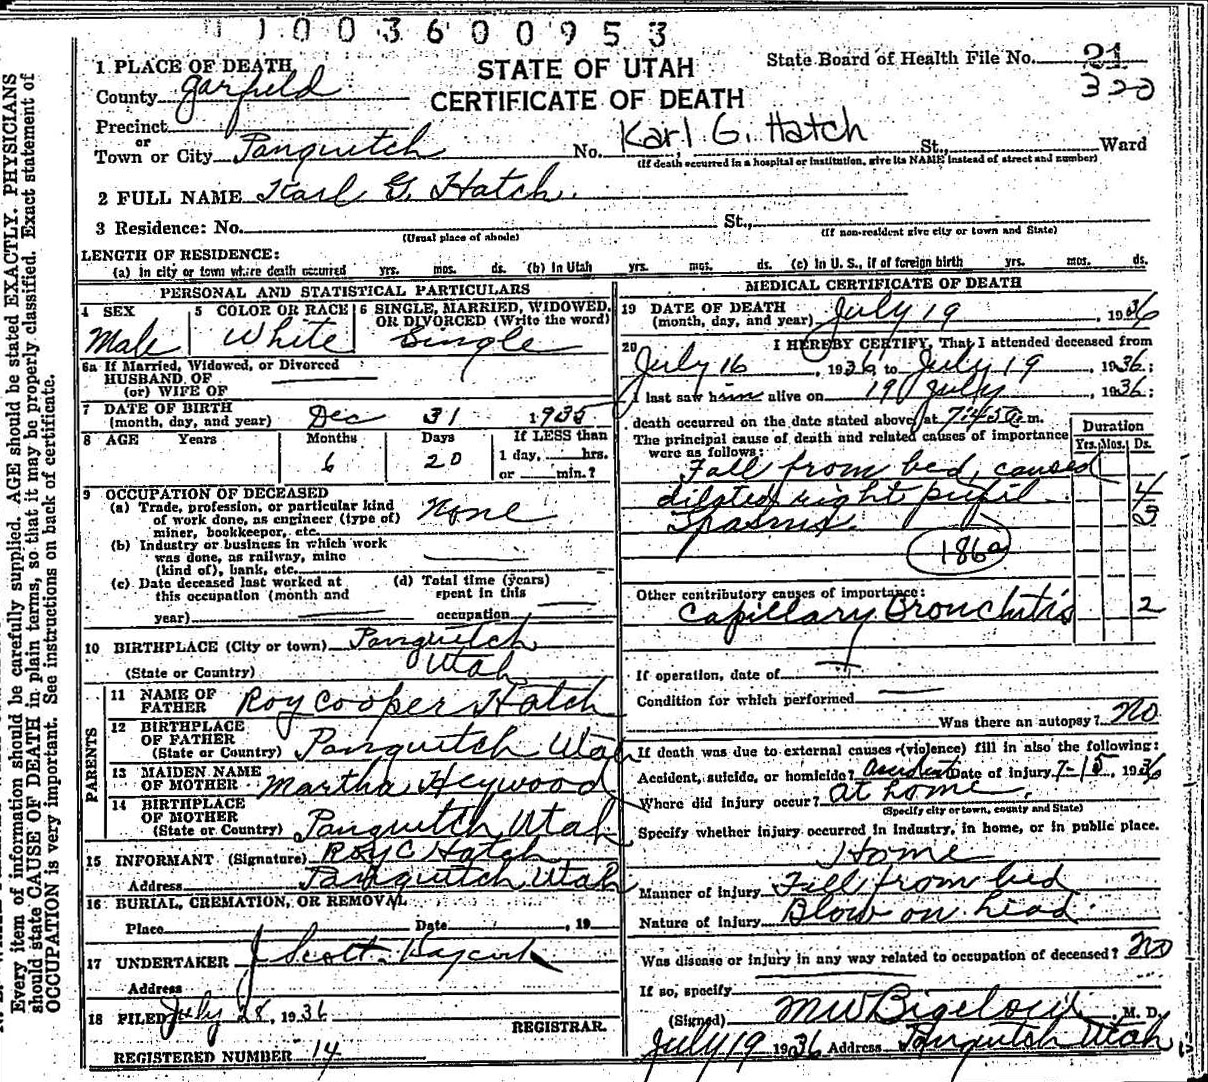 1003600953
1 PLACE OF DEATH
STATE OF UTAH
CERTIFICATE OF DEATH
State Board of Health File No. 21
320
County Garfield
Precinct
or
Town or City Panguitch No. Karl G. Hatch St., Ward
(If death occurred in a hospital or institution, give its NAME instead of street and number)
2 FULL NAME Karl G. Hatch
3 Residence: No. St.,
(Usual place of abode) (If non-resident give city or town and State)
LENGTH OF RESIDENCE:
(a) in city or town where death occurred yrs. mos. ds. (b) in Utah yrs. mos. ds. (c) in U. S., if of foreign birth yrs. mos. ds.
PERSONAL AND STATISTICAL PARTICULARS
4 SEX
Male
5 COLOR OR RACE
White
6 SINGLE, MARRIED, WIDOWED,
OR DIVORCED (Write the word)
Single
6a If Married, Widowed, or Divorced
HUSBAND OF
(or) WIFE OF
7 DATE OF BIRTH
(month, day, and year) Dec 31 1935
8 AGE Years Months Days If LESS than
6 20 1 day, hrs.
or min.?
9 OCCUPATION OF DECEASED
(a) Trade, profession, or particular kind
of work done, as engineer (type of)
miner, bookkeeper, etc. None
(b) Industry or business in which work
was done, as railway, mine
(kind of), bank, etc.
(c) Date deceased last worked at
this occupation (month and
year)
(d) Total time (years)
spent in this
occupation
10 BIRTHPLACE (City or town) Panguitch
(State or Country) Utah
PARENTS
11 NAME OF
FATHER Roy Cooper Hatch
12 BIRTHPLACE
OF FATHER
(State or Country) Panguitch Utah
13 MAIDEN NAME
OF MOTHER Martha Heywood
14 BIRTHPLACE
OF MOTHER
(State or Country) Panguitch, Utah
15 INFORMANT (Signature) Roy C Hatch
Address Panguitch Utah
16 BURIAL, CREMATION, OR REMOVAL
Place Date , 19
17 UNDERTAKER J Scott Haycock
Address
18 FILED July 28, 1936
REGISTRAR.
REGISTERED NUMBER 14
MEDICAL CERTIFICATE OF DEATH
19 DATE OF DEATH
(month, day, and year) July 19, 1936
20 I HEREBY CERTIFY, That I attended deceased from
July 16, 1936, to July 19, 1936;
I last saw him alive on 19 July, 1936;
death occurred on the date stated above, at 7:45 a.m.
The principal cause of death and related causes of importance
were as follows:
Duration
Yrs. Mos. Ds.
Fall from bed, caused
dilated right pupil 4
Spasms 3
186a
Other contributory causes of importance:
Capillary Bronchitis 2
If operation, date of
Condition for which performed
Was there an autopsy? No
If death was due to external causes (violence) fill in also the following:
Accident, suicide, or homicide? Accident Date of injury 7-15, 1936
Where did injury occur? at home
(Specify city or town, county and State)
Specify whether injury occurred in industry, in home, or in public place.
Home
Manner of injury Fall from bed
Nature of injury Blow on head
Was disease or injury in any way related to occupation of deceased? No
If so, specify
(Signed) M W Bigelow, M. D.
July 19 1936 Address Panguitch Utah
Every item of information should be carefully supplied. AGE should be stated EXACTLY. PHYSICIANS
should state CAUSE OF DEATH in plain terms, so that it may be properly classified. Exact statement of
OCCUPATION is very important. See instructions on back of certificate.